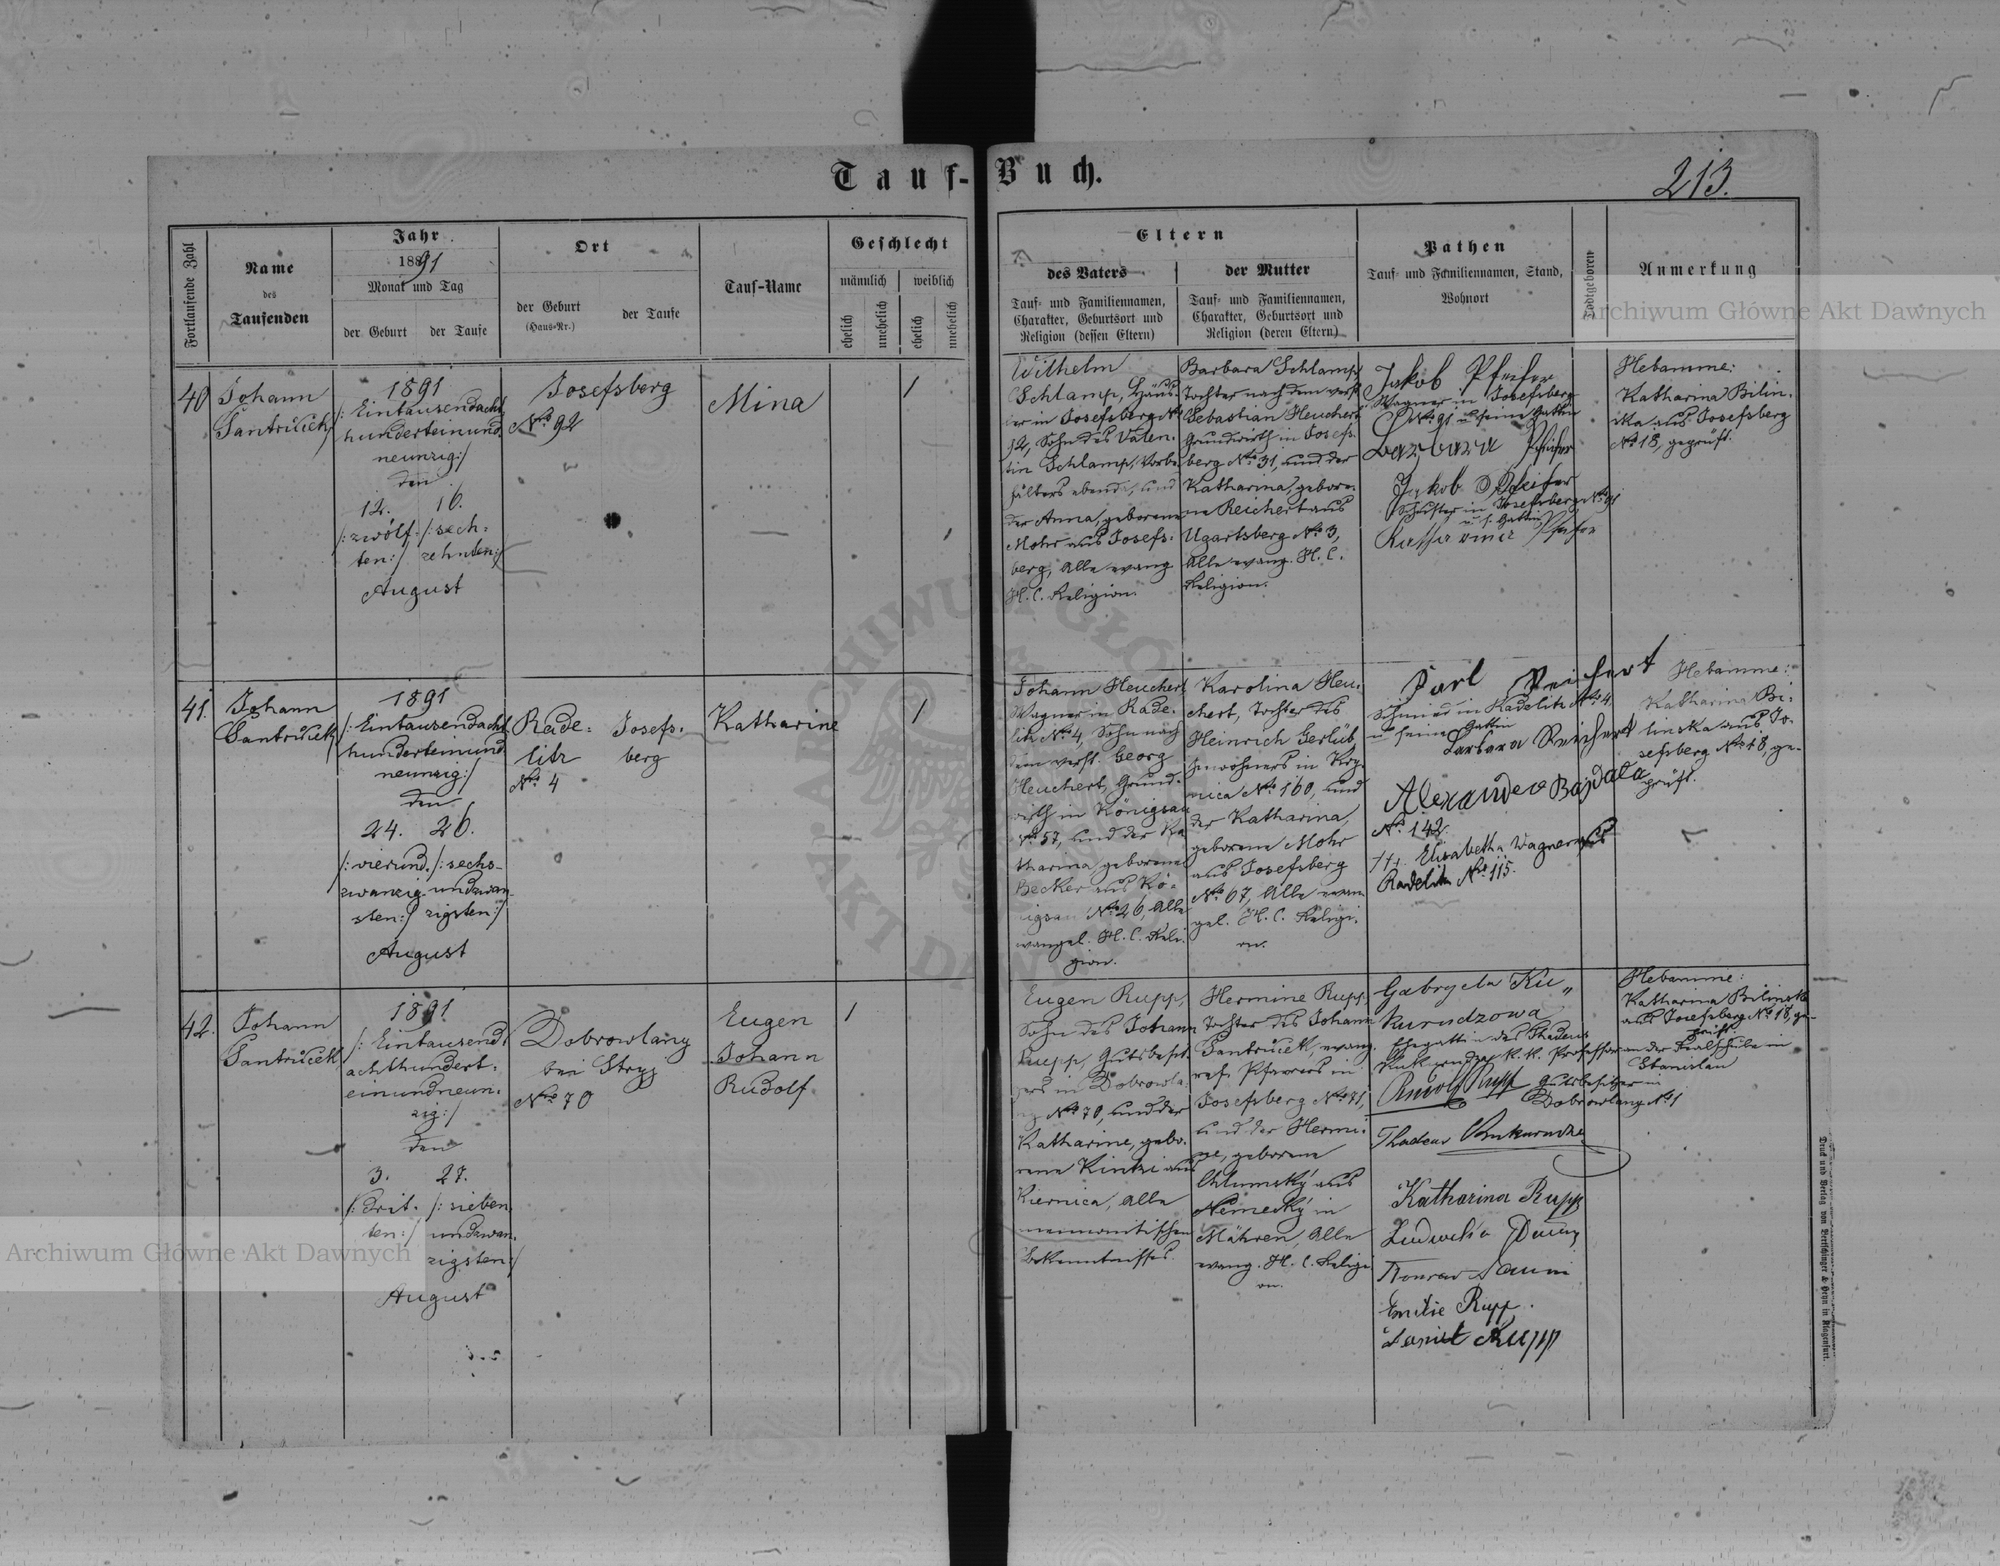 Tauf-Buch.
213.
Fortlaufende Zahl
Name
des
Taufenden
Jahr
1891
Monat und Tag
der Geburt
der Taufe
Ort
der Geburt
(Haus-Nr.)
der Taufe
Tauf-Name
Geschlecht
männlich
weiblich
ehelich
unehelich
ehelich
unehelich
Eltern
des Vaters
Tauf- und Familiennamen,
Charakter, Geburtsort und
Religion (dessen Eltern)
der Mutter
Tauf- und Familiennamen,
Charakter, Geburtsort und
Religion (deren Eltern)
Pathen
Tauf- und Familiennamen, Stand,
Wohnort
Todtgeboren
Anmerkung
40
Johann
Santrůček
1891
/: Eintausendacht
hunderteinund
neunzig:/
den
12. 16.
/:zwölf- /:sech-
ten:/ zehnten:/
August
Josefsberg
No 92
Mina
1
Wilhelm
Schlamp, Häus-
ler in Josefsberg No
92, Sohn des Valen-
tin Schlamp, Vorbe-
hälters ebenda, und
der Anna, geborene
Mohr aus Josefs-
berg, Alle evang
H. C. Religion.
Barbara Schlamp,
Tochter nach dem verst.
Sebastian Heuchert
Grundwirth in Josefs-
berg No 31, und der
Katharina, gebore-
ne Reichert aus
Ugartsberg No 3,
Alle evang. H. C.
Religion.
Jakob Pfeifer
Wagner in Josefsberg
No 91 u seine Gattin
Barbara Pfeifer
Jakob Pfeifer
Schuster in Josefsberg No 91
u. s. Gattin
Katharina Pfeifer
Hebamme:
Katharina Bilin-
ska aus Josefsberg
No 18, geprüft.
41.
Johann
Santrůček
1891
/: Eintausendacht
hunderteinund
neunzig:/
den
24. 26.
/:vierund- /:sechs-
zwanzig- undzwan-
sten:/ zigsten:/
August
Rade-
litz
No 4
Josefs-
berg
Katharine
1
Johann Heuchert
Wagner in Rade-
litz No 4, Sohn nach
dem verst. Georg
Heuchert, Grund-
wirth in Königsau
No 57, und der Ka
tharina geborene
Becker aus Kö-
nigsau No 26, Alle
evangel. H. C. Reli-
gion.
Karolina Heu-
chert, Tochter des
Heinrich Gerlüb
Inwohners in Kry-
nica No 160, und
der Katharina,
geborene Mohr
aus Josefsberg
No 67, Alle evan
gel. H. C. Religi-
on.
Karl Reichert
Schmied in Radelitz No 4,
u seine Gattin
Barbara Reichert
Alexander Bajdala
No 142
††† Elisabetha Wagner aus
Radelitz No 115.
Hebamme:
Katharina Bi-
linska aus Jo-
sefsberg No 18, ge-
prüft.
42.
Johann
Santrůček
1891
/: Eintausend
achthundert-
einundneun-
zig:/
den
3. 27.
/:drit- /:sieben
ten:/ undzwan-
zigsten:/
August
Dobrowlany
bei Stryj
No 70
Eugen
Johann
Rudolf
1
Eugen Rupp,
Sohn des Johann
Rupp, Gutsbesit-
zers in Dobrowla-
ny No 70, und der
Katharine, gebo-
rene Kintzi aus
Kiernica, Alle
mennonitischen
Bekenntnisses.
Hermine Rupp,
Tochter des Johann
Santrůček, evang.
ref. Pfarrers in
Josefsberg No 71,
und der Hermi-
ne, geborene
Chlumský aus
Německý in
Mähren, Alle
evang. H. C. Religi
on.
Gabryela Ku„
kurudzowa
Ehegattin des Thadeus
Kukurudza k. k. Professor an der Realschule in
Stanislau
Rudolf Rupp Gutsbesitzer in
Dobrowlany No 1
Thadeus Kukurudza
Katharina Rupp
Emilie Rupp.
Daniel Rupp
Hebamme:
Katharina Bilinska
aus Josefsberg No 18, ge-
prüft.
Druck und Verlag von Bertschinger & Heyn in Klagenfurt.
Archiwum Główne Akt Dawnych
Archiwum Główne Akt Dawnych
ARCHIWUM GŁÓWNE
AKT DAWNYCH